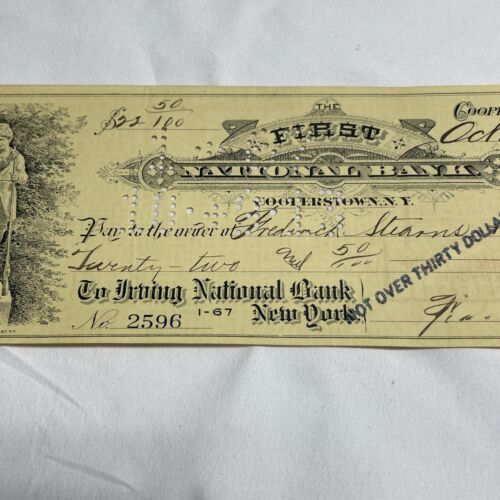 $22 50/100
THE
FIRST
NATIONAL BANK
COOPERSTOWN, N.Y.
COOPE
Oct
Pay to the order of Frederick Stearns
Twenty-two and 50/100
NOT OVER THIRTY DOLLA
To Irving National Bank
No. 2596 1-67 New York